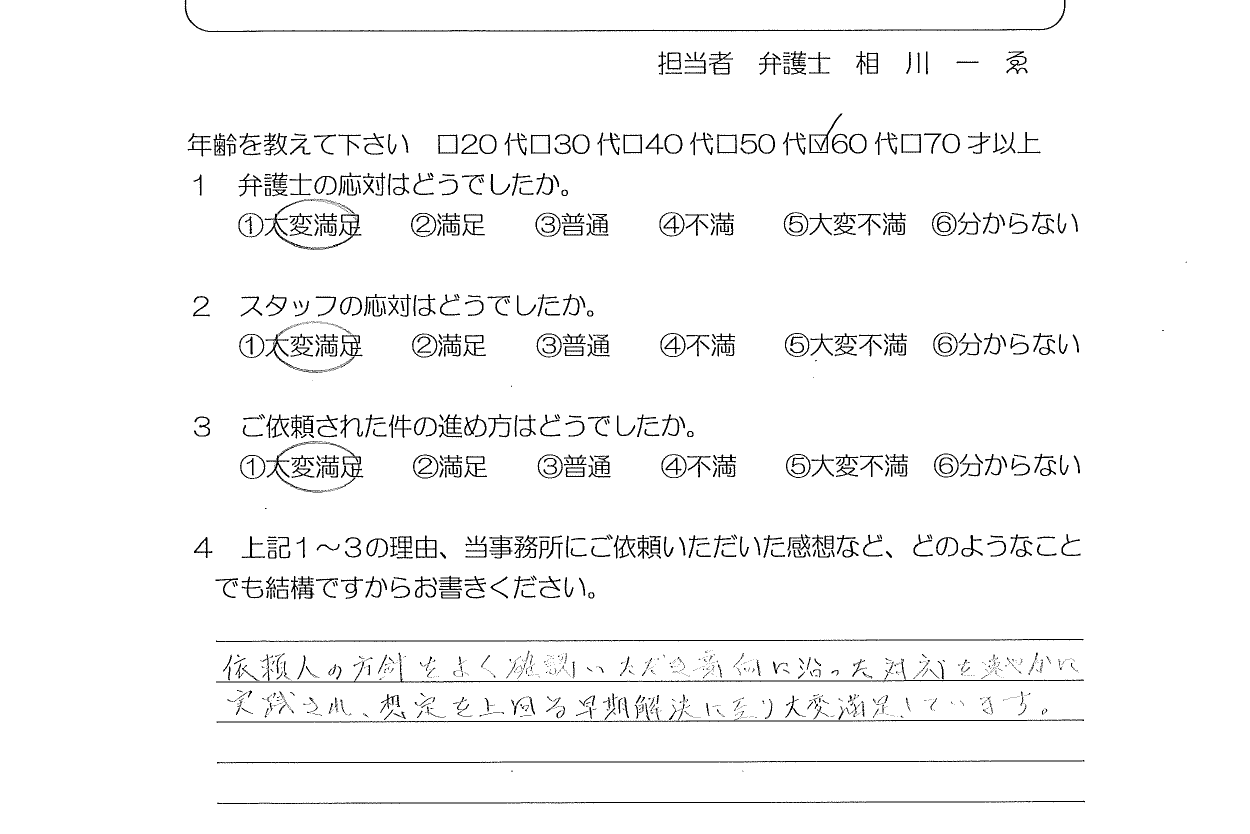 担当者 弁護士 相 川 一 ゑ
年齢を教えて下さい □20代□30代□40代□50代☑60代□70才以上
1 弁護士の応対はどうでしたか。
①大変満足 ②満足 ③普通 ④不満 ⑤大変不満 ⑥分からない
2 スタッフの応対はどうでしたか。
①大変満足 ②満足 ③普通 ④不満 ⑤大変不満 ⑥分からない
3 ご依頼された件の進め方はどうでしたか。
①大変満足 ②満足 ③普通 ④不満 ⑤大変不満 ⑥分からない
4 上記1～3の理由、当事務所にご依頼いただいた感想など、どのようなこと
でも結構ですからお書きください。
依頼人の方針をよく確認いただき意向に沿った対応を速やかに
実践され、想定を上回る早期解決に至り大変満足しています。